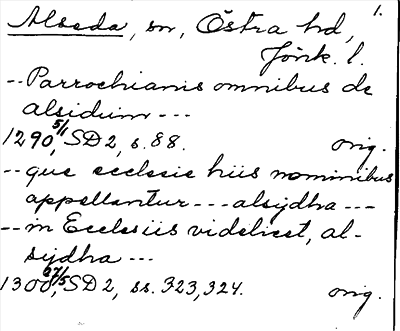 Alseda, sn, Östra hd, 1.
Jönk. l.
-- Parrochianis omnibus de
alsidum ---
1290 5/1, SD 2, s. 88. orig.
-- que ecclesie hiis nominibus
appellantur --- alsydha ---
-- in Ecclesiis videlicet, al-
sydha ---
1300 27/5, SD 2, ss. 323, 324. orig.